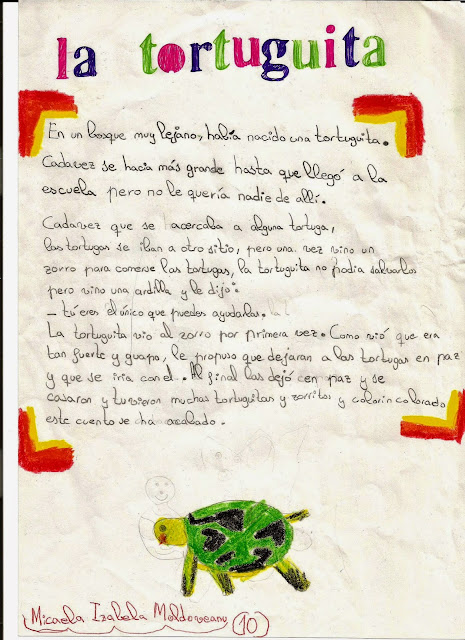 la tortuguita
En un bosque muy lejano, había nacido una tortuguita.
Cadavez se hacia más grande hasta que llegó a la
escuela pero no le quería nadie de allí.
Cadavez que se acercaba a alguna tortuga,
las tortugas se iban a otro sitio, pero una vez vino un
zorro para comerse las tortugas, la tortuguita no podia salvarlas
pero vino una ardilla y le dijo:
- tú eres él único que puedes ayudarlas.
La tortuguita vio al zorro por primera vez. Como vió que era
tan fuerte y guapo, le propuso que dejaran a las tortugas en paz
y que se iria con el. Al final las dejó cen paz y se
casaron y tuvieron muchas tortuguitas y zorritos y colorin colorado
este cuento se ha acabado.
Micaela Izabela Moldoveanu (10)